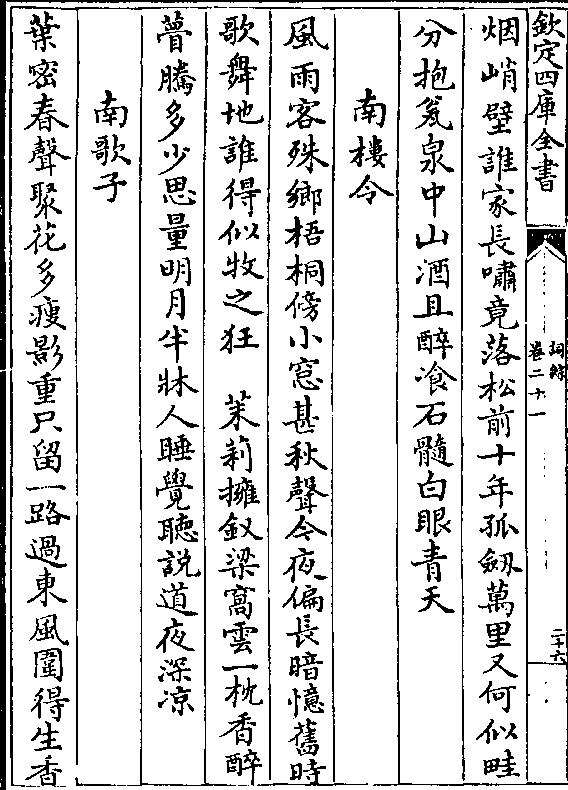 欽定四庫全書
詞綜
卷二十一
二十六
烟峭壁誰家長嘯竟落松前十年孤劒萬里又何似畦
分抱瓮泉中山酒且醉飡石髓白眼青天
南樓令
風雨客殊鄉梧桐傍小窓甚秋聲今夜偏長暗憶舊時
歌舞地誰得似牧之狂 茉莉擁釵梁窩雲一枕香醉
瞢騰多少思量明月半牀人睡覺聴説道夜深凉
南歌子
葉密春聲聚花多瘦影重只留一路過東風圍得生香